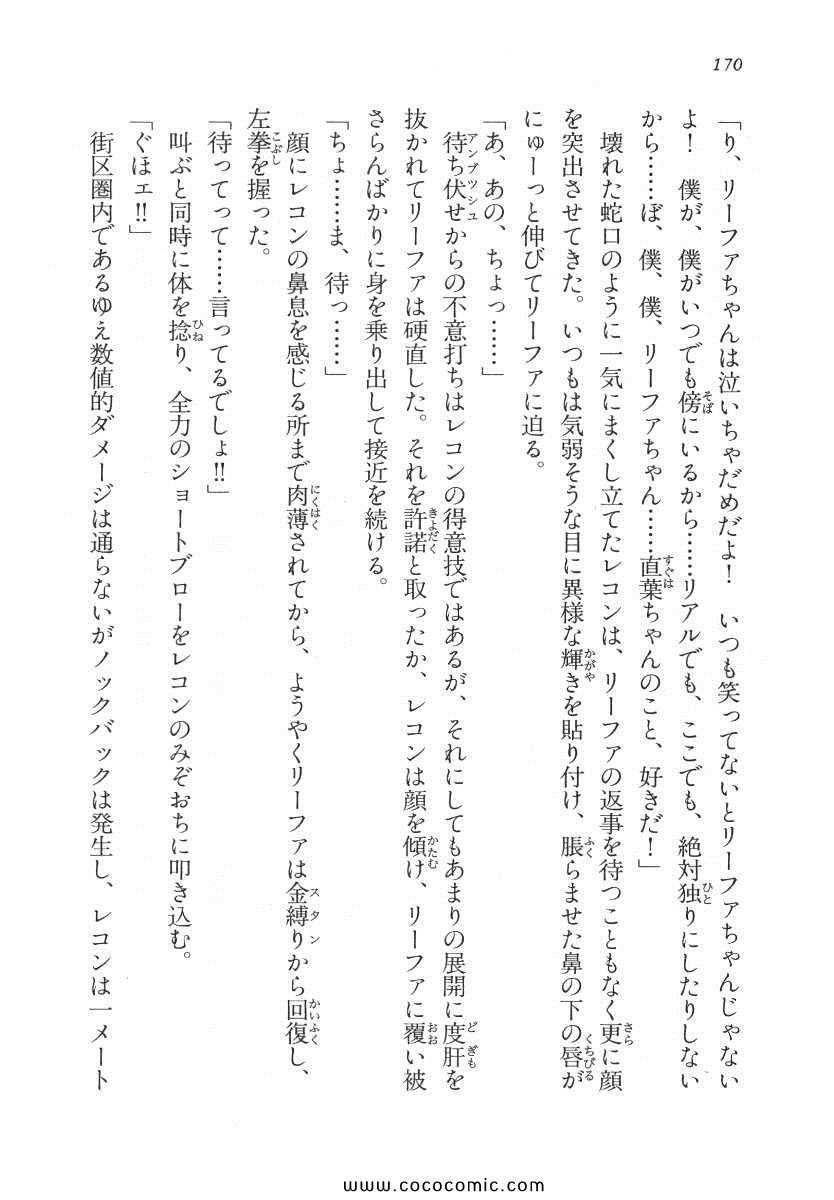 170
「り、リーファちゃんは泣いちゃだめだよ！　いつも笑ってないとリーファちゃんじゃない
よ！　僕が、僕がいつでも傍にいるから……リアルでも、ここでも、絶対独りにしたりしない
から……ぼ、僕、僕、リーファちゃん……直葉ちゃんのこと、好きだ！」
　壊れた蛇口のように一気にまくし立てたレコンは、リーファの返事を待つこともなく更に顔
を突出させてきた。いつもは気弱そうな目に異様な輝きを貼り付け、脹らませた鼻の下の唇が
にゅーっと伸びてリーファに迫る。
「あ、あの、ちょっ……」
　待ち伏せからの不意打ちはレコンの得意技ではあるが、それにしてもあまりの展開に度肝を
抜かれてリーファは硬直した。それを許諾と取ったか、レコンは顔を傾け、リーファに覆い被
さらんばかりに身を乗り出して接近を続ける。
「ちょ……ま、待っ……」
　顔にレコンの鼻息を感じる所まで肉薄されてから、ようやくリーファは金縛りから回復し、
左拳を握った。
「待ってって……言ってるでしょ!!」
　叫ぶと同時に体を捻り、全力のショートブローをレコンのみぞおちに叩き込む。
「ぐほェ!!」
　街区圏内であるゆえ数値的ダメージは通らないがノックバックは発生し、レコンは一メート
www.cococomic.com